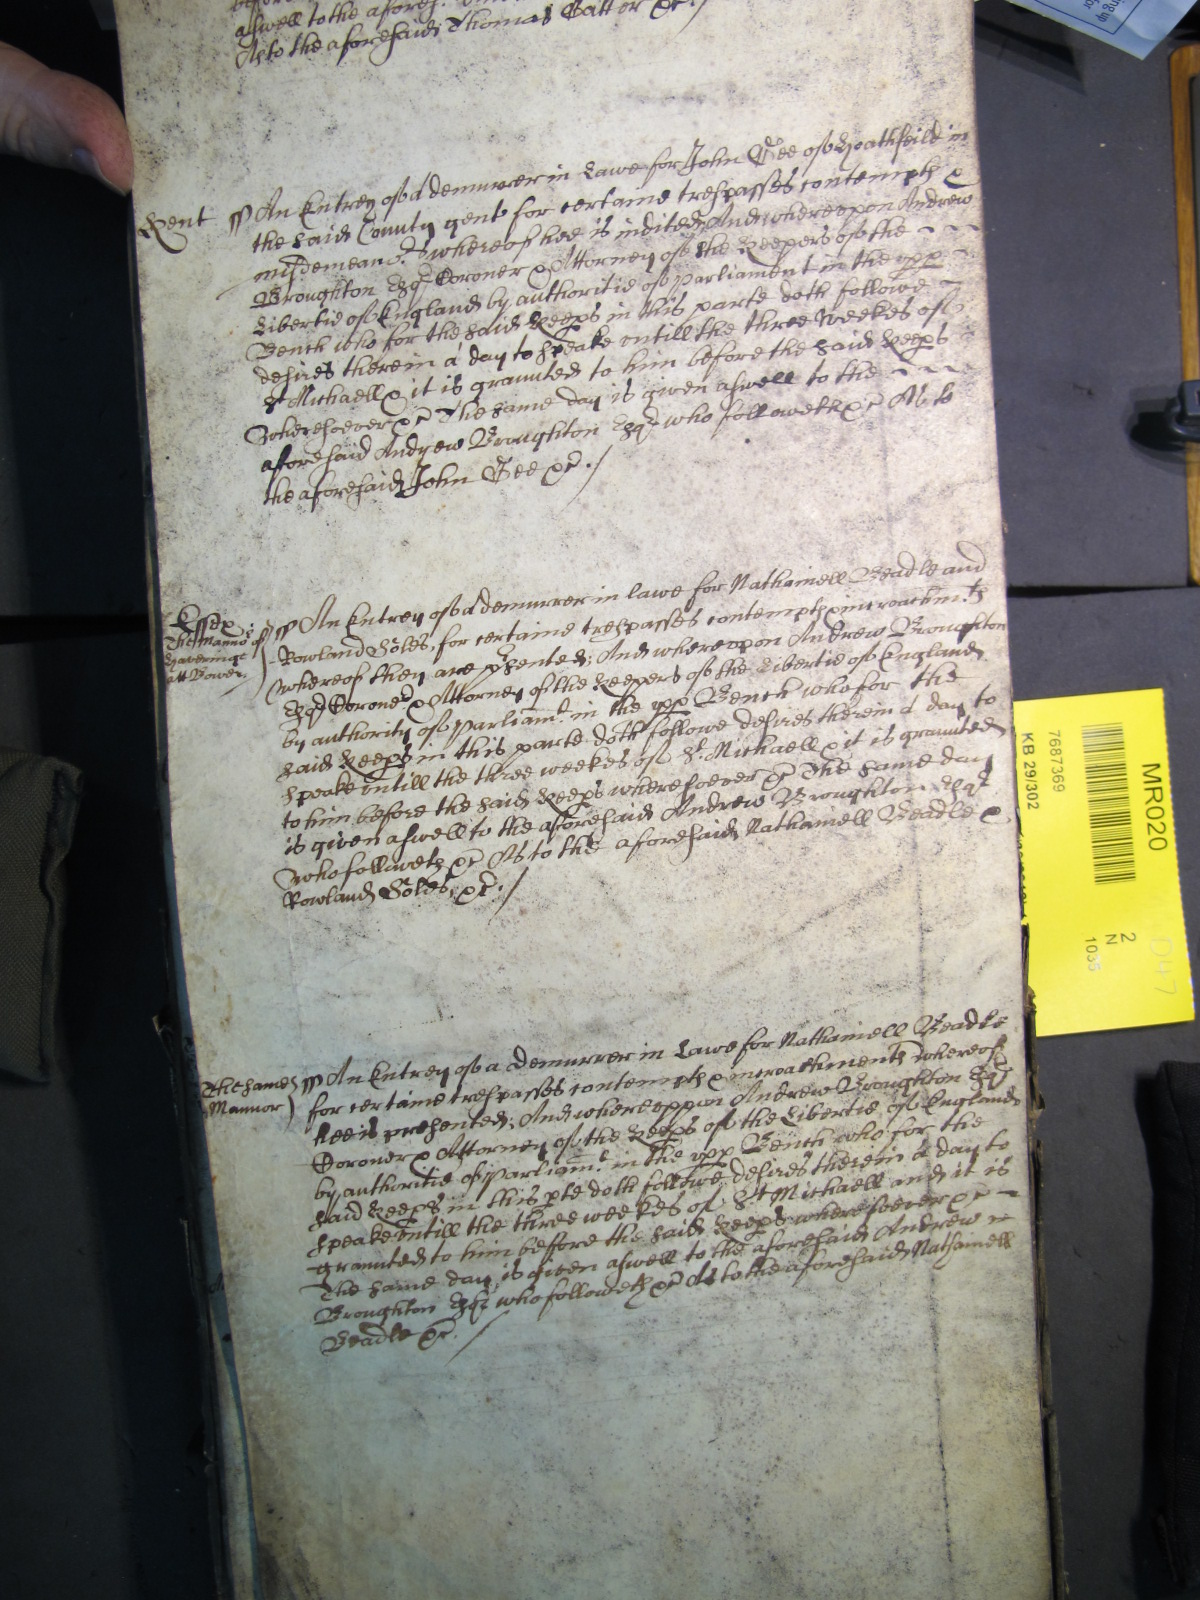 aswell to the aforesd
As to the aforesaid Thomas Cattor &c./
Kent ss An Entrey of a demurrer in Lawe for John Gee of Hoathfeild in
the said County gent for certaine trespasses contempts &
misdemeanors whereof hee is indited; And whereupon Andrew
Broughton Esqr Coroner & Attorney of the Keepers of the
Libertie of England by authoritie of Parliament in the upp
Bench who for the said Keeps in this parte doth followe
desires therein a day to speake untill the three Weekes of
St Michaell & it is graunted to him before the said Keeps
wheresoever &c The same day is given aswell to the
aforesaid Andrew Broughton Esqr who followeth &c As to
the aforesaid John Gee &c./
Essex
The Mannor of
Haveringe
att Bower
ss An Entrey of a demurrer in lawe for Nathaniell Beadle and
Rowland Soles, for certaine trespasses contempts & incroachmts
whereof they are psented; And whereupon Andrew Broughton
Esqr Coroner & Attorney of the Keepers of the Libertie of England
by authority of Parliamt in the upp Bench who for the
said Keeps in this parte doth followe desires therein a day to
speake untill the three weekes of St Michaell & it is graunted
to him before the said Keeps wheresoever &c The same day
is given aswell to the aforesaid Andrew Broughton Esqr
who followeth &c As to the aforesaid Nathaniell Beadle &
Rowland Soles, &c./
The same
Mannor
ss An Entrey of a demurrer in Lawe for Nathaniell Beadle
for certaine trespasses contempts & incroachments whereof
hee is presented; And whereuppon Andrew Broughton Esqr
Coroner & Attorney of the Keeps of the Libertie of England
by authoritie of Parliamt in the upp Bench who for the
said Keeps in this pte doth followe desires therein a day to
speake untill the three weekes of St Michaell and it is
graunted to him beffore the said Keeps wheresoever &c
The same day is given aswell to the aforesaid Andrew
Broughton Esqr who followeth &c As to the aforesaid Nathaniell
Beadle &c./
MR020
7687369
KB 29/302
2
N
1035
D47